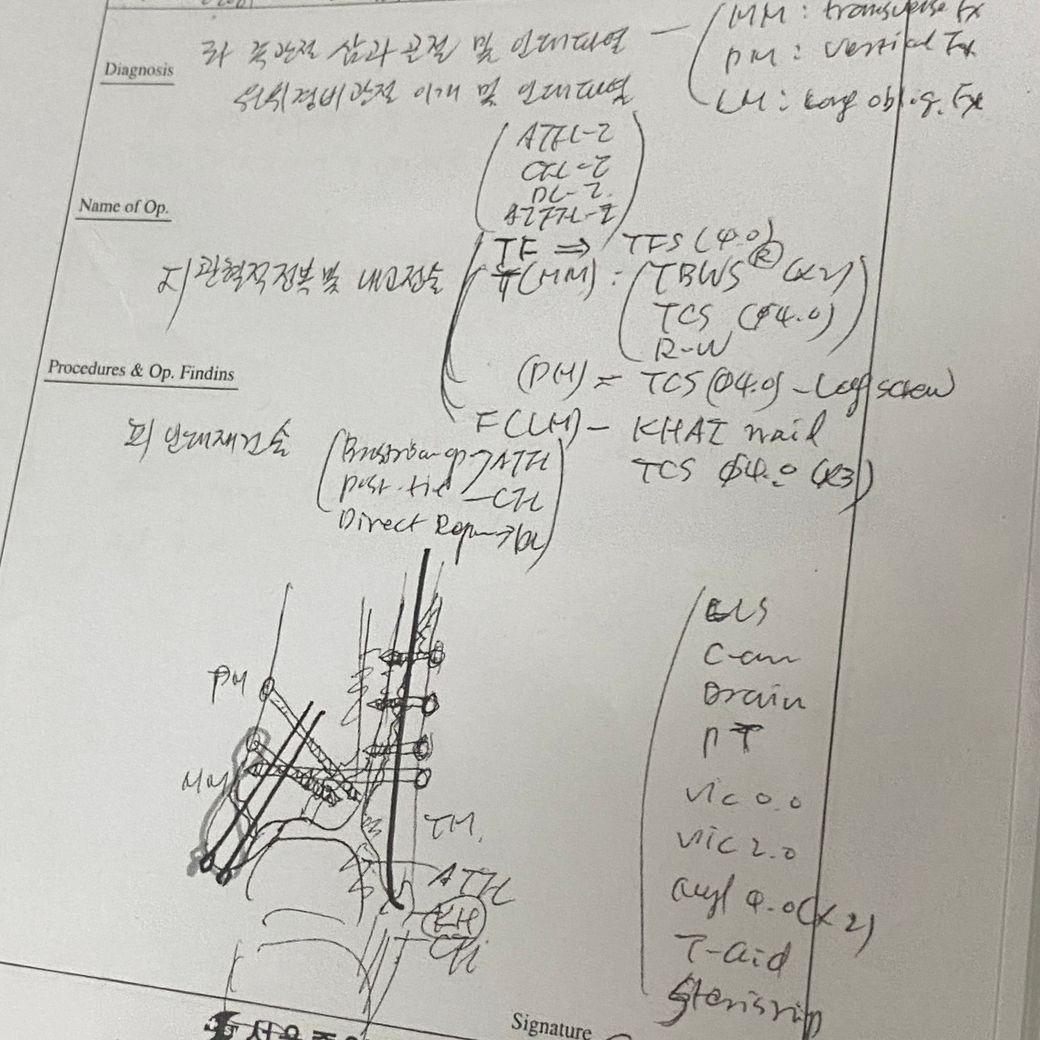 Diagnosis
좌 족관절 삼과 골절 및 인대파열
MM : transverse Fx
PM : vertical Fx
LM : Long obliq. Fx
원위경비관절 이개 및 인대파열
ATFL-I
CFL-I
DL-I
AITFL-I
Name of Op.
관혈적정복 및 내고정술
TF ⇒ TFS (4.0)
T(MM) : TBWS® (x2)
TCS (Φ4.0)
R-W
(PM) = TCS (Φ4.0) - Lag screw
F(LM) - KHAI nail
TCS Φ4.0 (x3)
Procedures & Op. Findins
인대재건술
ATFL
post. tie - CFL
Direct
PM
MM
ATFL
CFL
C-arm
Drain
PT
vic 0.0
vic 2.0
4.0 (x2)
T-aid
Steristrip
Signature